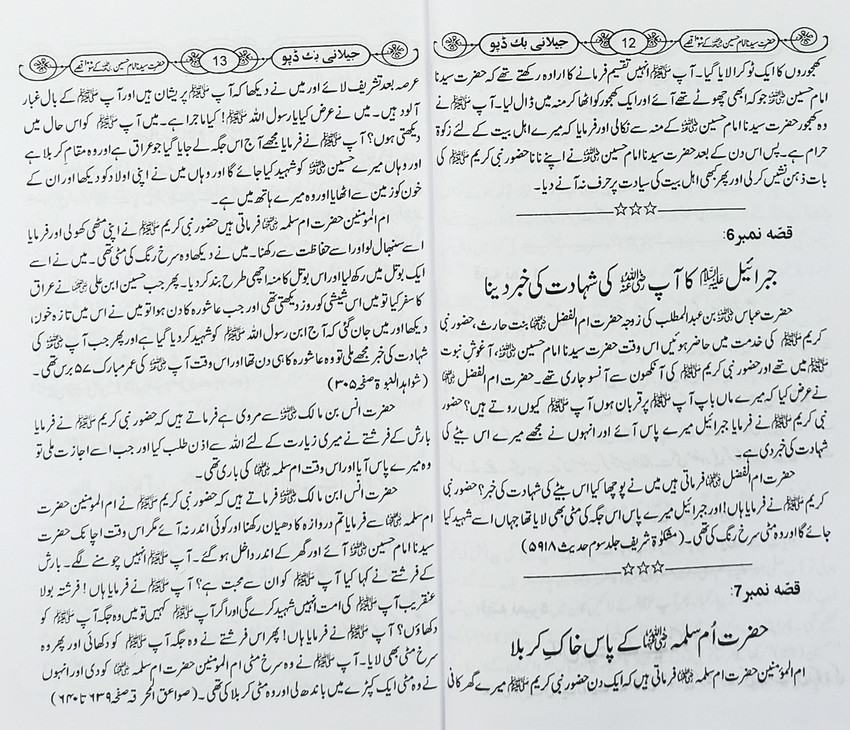 حضرت سیدنا امام حسین رضی اللہ عنہ کے سو واقعے 12 جیلانی بک ڈپو
کھجوروں کا ایک ٹوکرا لایا گیا۔ آپ ﷺ انہیں تقسیم فرمانے کا ارادہ رکھتے تھے کہ حضرت سیدنا
امام حسین رضی اللہ عنہ جو کہ ابھی چھوٹے تھے آئے اور ایک کھجور کو اٹھا کر منہ میں ڈال لیا۔ آپ ﷺ نے
وہ کھجور حضرت سیدنا امام حسین رضی اللہ عنہ کے منہ سے نکالی اور فرمایا کہ میرے اہل بیت کے لئے زکوٰۃ
حرام ہے۔ پس اس دن کے بعد حضرت سیدنا امام حسین رضی اللہ عنہ نے اپنے نانا حضور نبی کریم ﷺ کی
بات ذہن نشیں کر لی اور پھر کبھی اہل بیت کی سیادت پر حرف نہ آنے دیا۔
☆☆☆
قصّہ نمبر 6:
جبرائیل علیہ السلام کا آپ رضی اللہ عنہ کی شہادت کی خبر دینا
حضرت عباس رضی اللہ عنہ بن عبدالمطلب کی زوجہ حضرت ام الفضل رضی اللہ عنہا بنت حارث، حضور نبی
کریم ﷺ کی خدمت میں حاضر ہوئیں اس وقت حضرت سیدنا امام حسین رضی اللہ عنہ، آغوشِ نبوت
ﷺ میں تھے اور حضور نبی کریم ﷺ کی آنکھوں سے آنسو جاری تھے۔ حضرت ام الفضل رضی اللہ عنہا
نے عرض کیا کہ میرے ماں باپ آپ ﷺ پر قربان ہوں آپ ﷺ کیوں روتے ہیں؟ حضور
نبی کریم ﷺ نے فرمایا جبرائیل میرے پاس آئے اور انہوں نے مجھے میرے اس بیٹے کی
شہادت کی خبر دی ہے۔
حضرت ام الفضل رضی اللہ عنہا فرماتی ہیں میں نے پوچھا کیا اس بیٹے کی شہادت کی خبر؟ حضور نبی
کریم ﷺ نے فرمایا ہاں! اور جبرائیل میرے پاس اس جگہ کی مٹی بھی لایا تھا جہاں اسے شہید کیا
جائے گا اور وہ مٹی سرخ رنگ کی تھی۔ (مشکوٰۃ شریف جلد سوم حدیث ۵۹۱۸)
☆☆☆
قصّہ نمبر 7:
حضرت اُم سلمہ رضی اللہ عنہا کے پاس خاکِ کربلا
ام المومنین حضرت ام سلمہ رضی اللہ عنہا فرماتی ہیں کہ ایک دن حضور نبی کریم ﷺ میرے گھر کافی
حضرت سیدنا امام حسین رضی اللہ عنہ کے سو واقعے 13 جیلانی بک ڈپو
عرصہ بعد تشریف لائے اور میں نے دیکھا کہ آپ ﷺ پریشان ہیں اور آپ ﷺ کے بال غبار
آلود ہیں۔ میں نے عرض کیا یا رسول اللہ ﷺ! کیا ماجرا ہے۔ میں آپ ﷺ کو اس حال میں
دیکھتی ہوں؟ آپ ﷺ نے فرمایا مجھے آج اس جگہ لے جایا گیا جو عراق ہے اور وہ مقام کربلا ہے
اور وہاں میرے حسین رضی اللہ عنہ کو شہید کیا جائے گا اور وہاں میں نے اپنی اولاد کو دیکھا اور ان کے
خون کو زمین سے اٹھایا اور وہ میرے ہاتھ میں ہے۔
ام المومنین حضرت ام سلمہ رضی اللہ عنہا فرماتی ہیں حضور نبی کریم ﷺ نے اپنی مٹھی کھولی اور فرمایا
اسے سنبھال لو اور اسے حفاظت سے رکھنا۔ میں نے دیکھا وہ سرخ رنگ کی مٹی تھی۔ میں نے اسے
ایک بوتل میں رکھ لیا اور اس بوتل کا منہ اچھی طرح بند کر دیا۔ پھر جب حسین ابن علی رضی اللہ عنہما نے عراق
کا سفر کیا تو میں اس شیشی کو روز دیکھتی تھی اور جب عاشورہ کا دن ہوا تو میں نے اس میں تازہ خون
دیکھا اور میں جان گئی کہ آج ابن رسول اللہ ﷺ کو شہید کر دیا گیا ہے اور پھر جب آپ ﷺ کی
شہادت کی خبر مجھے ملی تو وہ عاشورہ کا ہی دن تھا اور اس وقت آپ ﷺ کی عمر مبارک ۵۷ برس تھی۔
(شواہد النبوۃ صفحہ ۳۰۵)
حضرت انس بن مالک رضی اللہ عنہ سے مروی ہے فرماتے ہیں کہ حضور نبی کریم ﷺ نے فرمایا
بارش کے فرشتے نے میری زیارت کے لئے اللہ سے اذن طلب کیا اور جب اسے اجازت ملی تو
وہ میرے پاس آیا اور اس وقت ام سلمہ رضی اللہ عنہا کی باری تھی۔
حضرت انس ابن مالک رضی اللہ عنہ فرماتے ہیں کہ حضور نبی کریم ﷺ نے ام المومنین حضرت
ام سلمہ رضی اللہ عنہا سے فرمایا تم دروازہ کا دھیان رکھنا اور کوئی اندر نہ آئے مگر اس وقت اچانک حضرت
سیدنا امام حسین رضی اللہ عنہ آئے اور گھر کے اندر داخل ہو گئے۔ آپ ﷺ انہیں چومنے لگے۔ بارش
کے فرشتے نے کہا کیا آپ ﷺ کو ان سے محبت ہے؟ آپ ﷺ نے فرمایا ہاں! فرشتہ بولا
عنقریب آپ ﷺ کی امت انہیں شہید کرے گی اور اگر آپ ﷺ کہیں تو میں وہ جگہ آپ ﷺ کو
دکھاؤں؟ آپ ﷺ نے فرمایا ہاں! پھر اس فرشتے نے وہ جگہ آپ ﷺ کو دکھائی اور پھر وہ
سرخ مٹی بھی لایا۔ آپ ﷺ نے وہ سرخ مٹی ام المومنین حضرت ام سلمہ رضی اللہ عنہا کو دی اور انہوں
نے وہ مٹی ایک کپڑے میں باندھ لی اور وہ مٹی کربلا کی تھی۔ (صواعق الحرقہ صفحہ ۶۳۹ تا ۶۴۰)